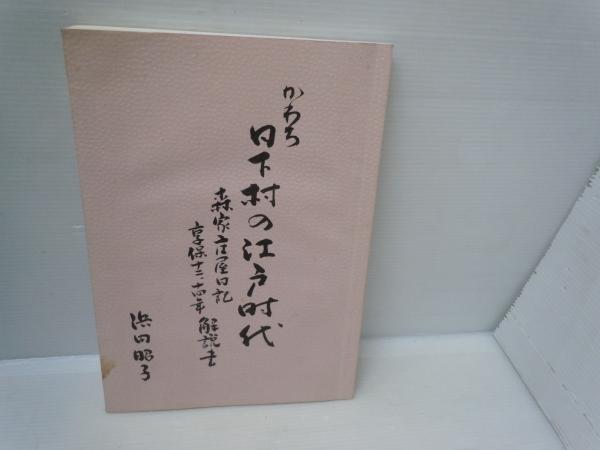 かわち
日下村の江戸時代
森家庄屋日記
享保十三・十四年 解説書
浜田昭子